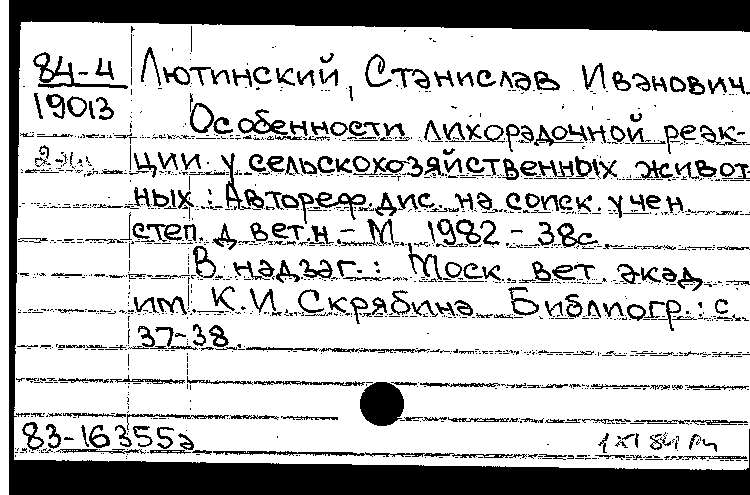 84-4 Лютинский, Станислав Иванович.
19013 Особенности лихорадочной реак-
2-эк, ции у сельскохозяйственных живот
ных: Автореф. дис. на соиск. учен.
степ. д. вет. н. - М., 1982. - 38 с.
В надзаг.: Моск. вет. акад.
им. К.И. Скрябина. Библиогр.: с.
37-38.
83-16355а